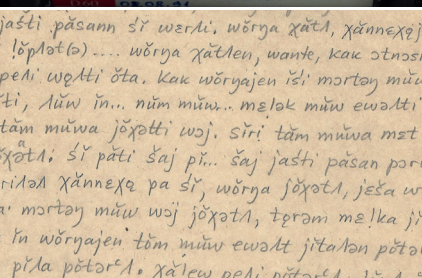 jaśti păsann śĭ wɛrʌi. wŏrŋa χătʌ, χănnɛχą
!ŏpʌət(ə) .... wŏrŋa χătʌen, wantɛ, kak ɔtnɔs
pɛʌi węʌtti ŏta. kak wŏrŋajen iśi mɔrtəŋ mŭw
ti, ʌŭw ĭn... nŭm mŭw.. mɛʌək mŭw ewəʌti
tăm mŭwa jŏχətti wɔj. sĭri tăm mŭwa mɛt
śĭ păti šaj pĭ... šaj jaśti păsan pɔr
riʌəʌ χănnɛχą pa śĭ, wŏrŋa jŏχətʌ, jɛša w
mɔrtəŋ mŭw wɔj jŏχətʌ, tęrəm mɛ!ka ji
ĭn wŏrŋajen tŏm mŭw ewəʌt jitaʌən pŏtə
pĭʌa pŏtərʌ. χăʌew pɛʌi